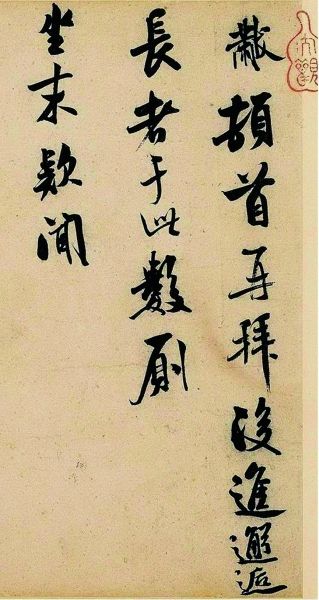 黻頓首再拜後進邂逅
長者于此數厠
坐末欵聞